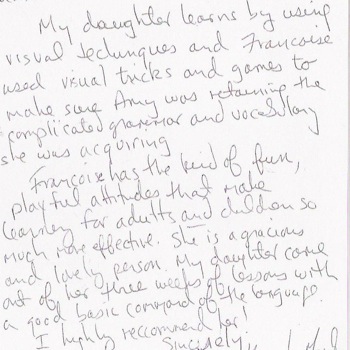 My daughter learns by using
visual techniques and Francoise
used visual tricks and games to
make sure Amy was retaining the
complicated grammar and vocabulary
she was acquiring
Francoise has the kind of fun,
playful attitudes that make
learning for adults and children so
much more effective. She is a gracious
and lovely person. My daughter came
out of her three weeks of lessons with
a good basic command of the language.
I highly reccommend her!
Sincerely,